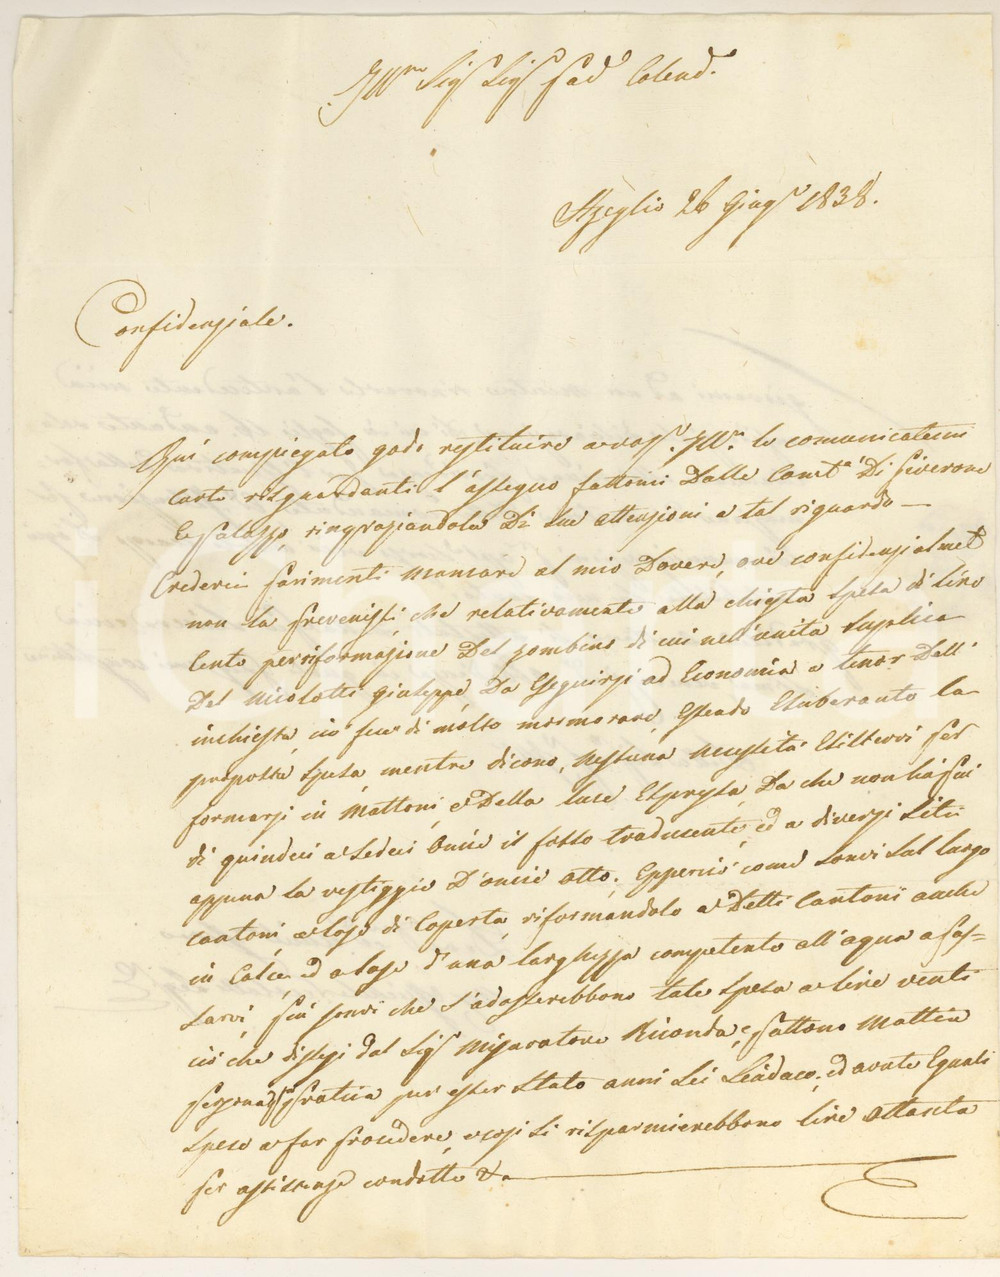 Ill.mo Sig.r Sig.r Pad. Colend.
Azeglio 26 Giug.o 1838.
Confidenziale.
Qui compiegato godo restituire a vos.a Ill.ma le comunicatemi
carte risguardanti l'assegno fattomi Dalle Com.tà Di Piverone
e Palazzo, ringraziandola Di sue attenzioni a tal riguardo —
Crederei parimenti mancare al mio Dovere, ove confidenzialmente
non la prevenissi che relativamente alla chiesta spesa di lire
Cento per riformazione Del Bombino di cui nell'unita supplica
Del Nicolotti Giuseppe Da Eseguirsi ad Economia a tenor Dell'
inchiesta, ciò fece di molto mormorare, Essendo Esuberante la
proposta spesa, mentre dicono, nessuna necessità Esistervi per
formarsi in Mattoni, e Della luce Espressa, Da che non ha più
di quindeci a sedeci Oncie il fosso traducente, ed a diversi siti
appena la vestiggia D'oncie otto; Epperciò come sonvi sul luogo
Cantoni e lose di Coperta, riformandolo a Detti Cantoni anche
in Calce, ed a lose d'una larghezza competente all'aqua a pas=
sarvi, più sonvi che s'adosserebbono tale spesa a lire venti
ciò che dissi dal Sig.r Misuratore Riconda, e fattone Matteo
persona pratica per esser stato anni sei Sindaco, ed avute Eguali
spese a far procedere, e così si risparmierebbono lire ottanta
per assistenze condotte &.